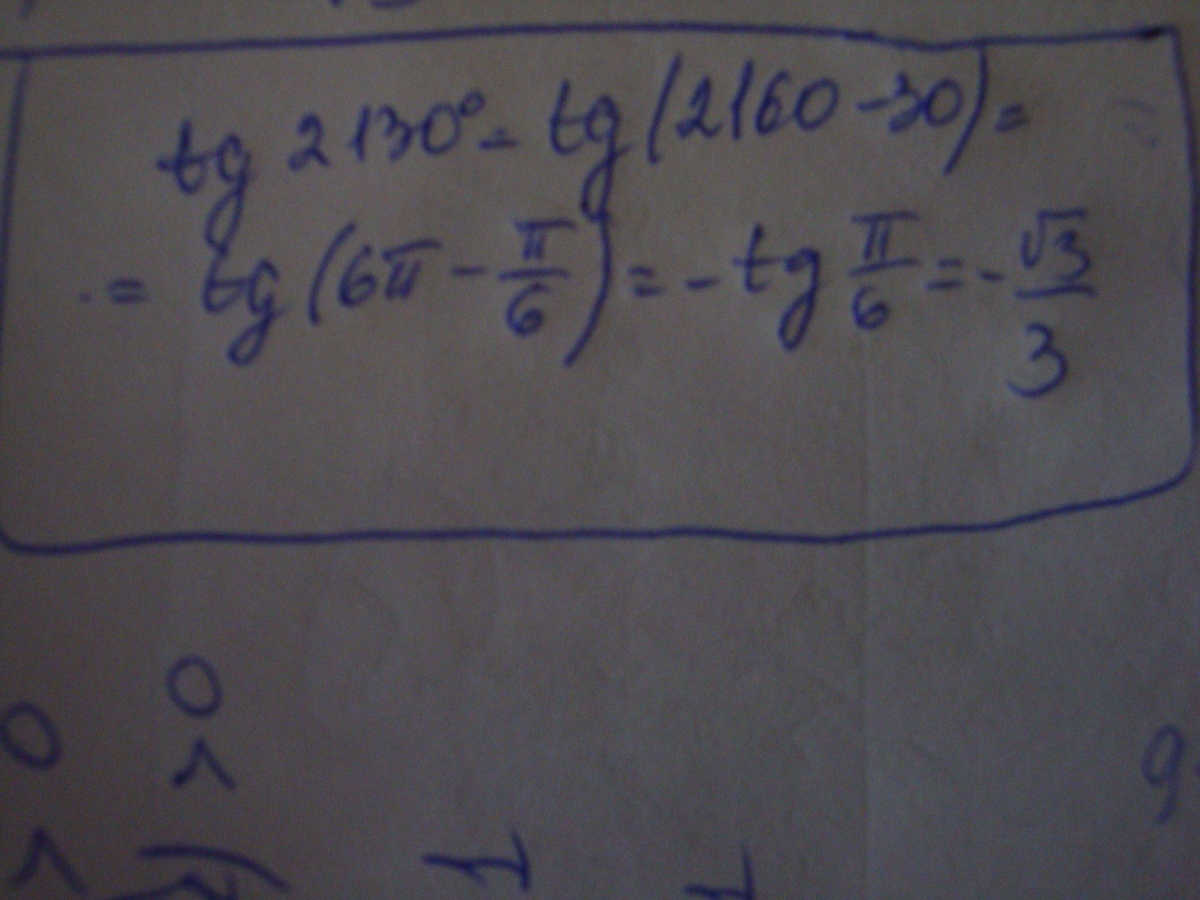 tg 2130° = tg (2160 - 30) =
= tg (6π - π/6) = - tg π/6 = - √3/3